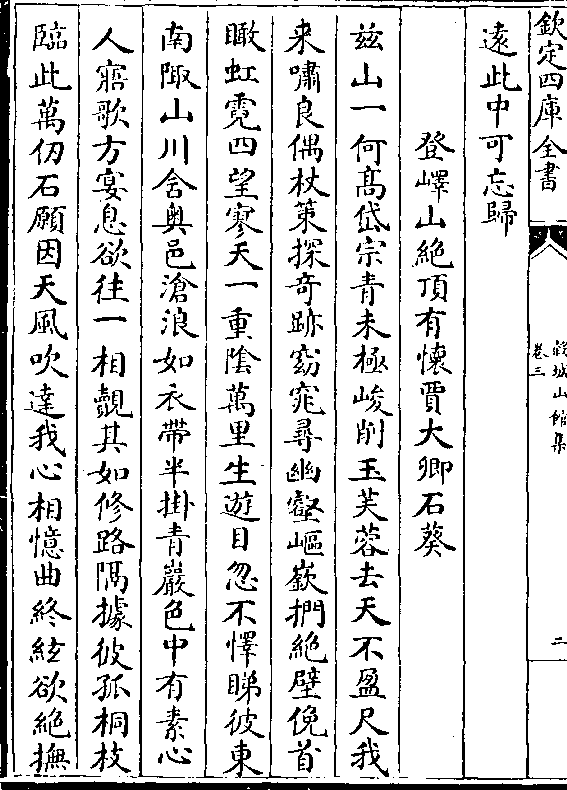 欽定四庫全書
穀城山館集
卷三
二
遠此中可忘歸
登嶧山絶頂有懷賈大卿石葵
兹山一何髙岱宗青未極峻削玉芙蓉去天不盈尺我
来嘯良偶杖策探奇跡窈窕尋幽壑嶇嶔捫絶壁俛首
瞰虹霓四望寥天一重陰萬里生遊目忽不懌睇彼東
南陬山川舍奥邑滄浪如衣帶半掛青巖色中有素心
人寤歌方宴息欲往一相覿其如修路隔據彼孤桐枝
臨此萬仞石願因天風吹達我心相憶曲終絃欲絶撫